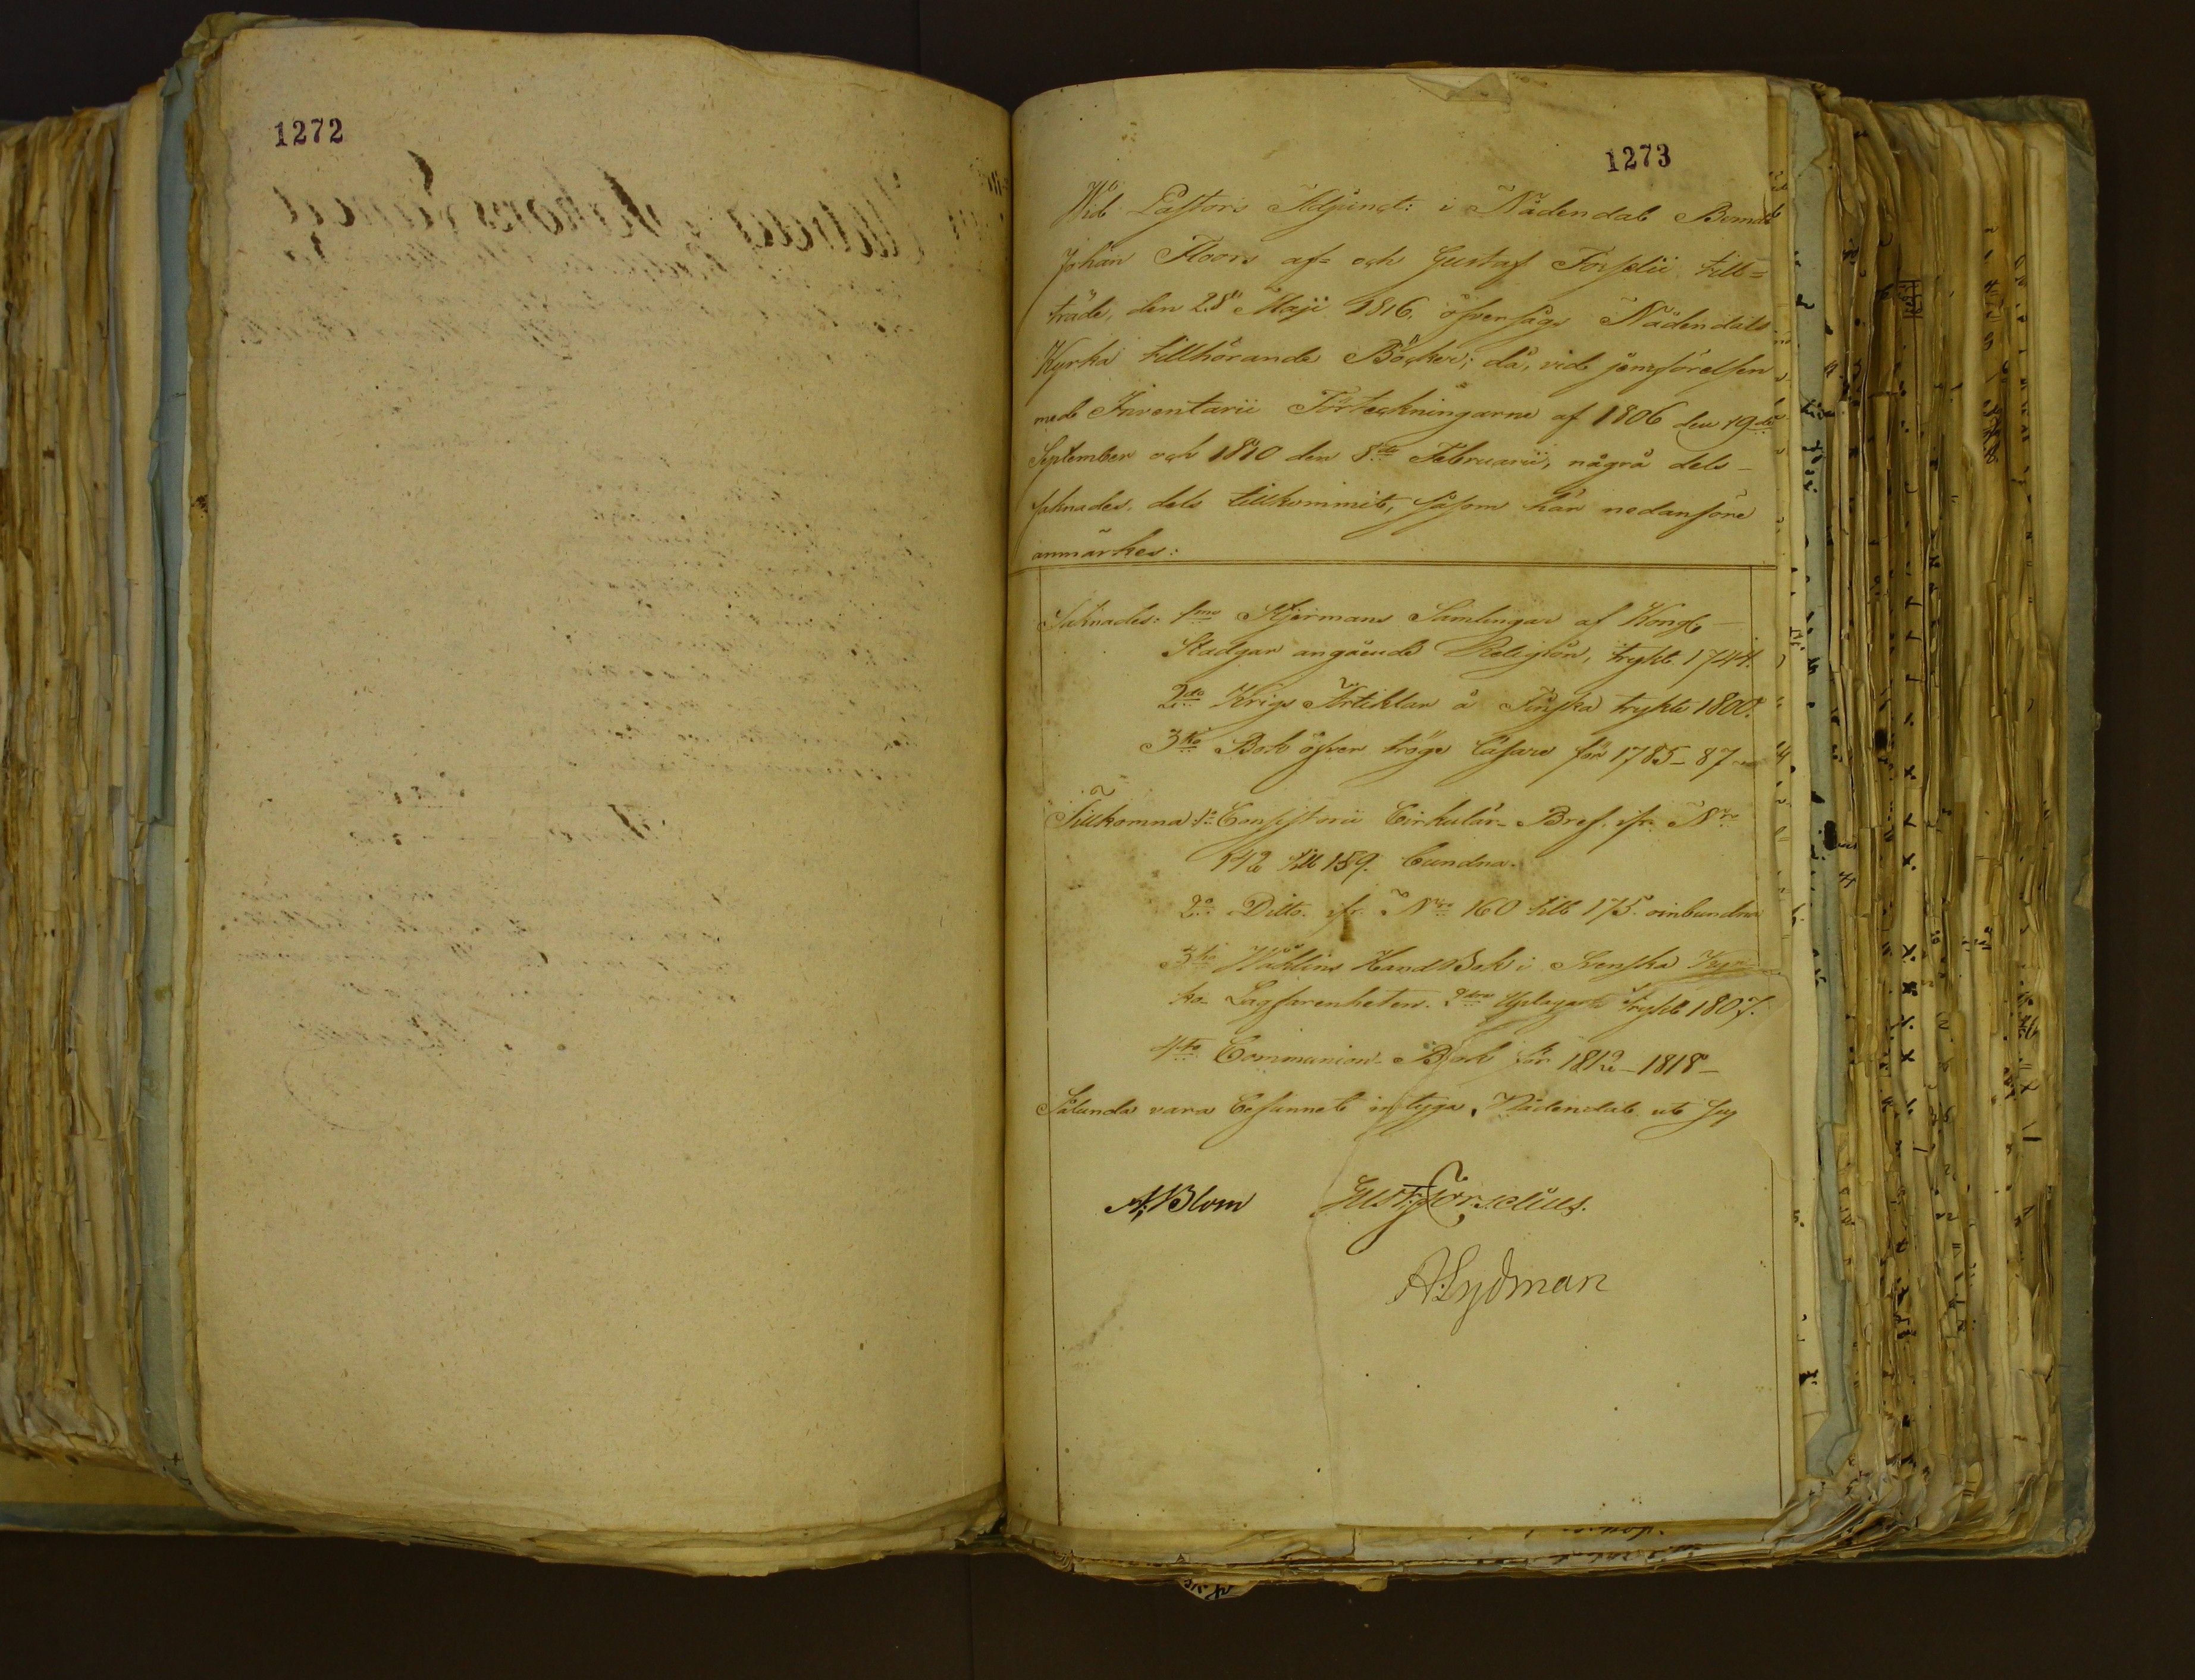 1272
1273
Wid Pastors Adjunct: i Nådendal
Johan Floors af- och Gustaf Forselii till=
träde, den 28 Maji 1816, öfversågs Nådendals
Kyrka tillhörande Böcker; då, vid jemförelsen
med Inventarii Förteckningarne af 1806 den 19de
September och 1810 den 8de Februarii, några dels
saknades, dels tillkommit, såsom här nedanföre
anmärkes:
Saknades: 1mo Stjermans Samlingar af Kongl
Stadgar angående Religion, trykt 1744.
2do Krigs Artiklar å Finska trykte 1800.
3tio Bok öfver tröge läsare för 1785-87
Tillkomna: 1o Consistorii Cirkulär-Bref ifr. Nro
142 till 159. bundna.
2o Ditto. ifr. Nro 160 till 175. oinbundna
3tio Wåhlins HandBok i Svenska Kyr
ko-Lagfarenheten. 2dra Uplagan trykt 1807.
4to Communion-Bok för 1812-1818-
Sålunda vara befunnet intyga, Nådendal ut
A. Blom Gust: Forselius.
A: Lydman